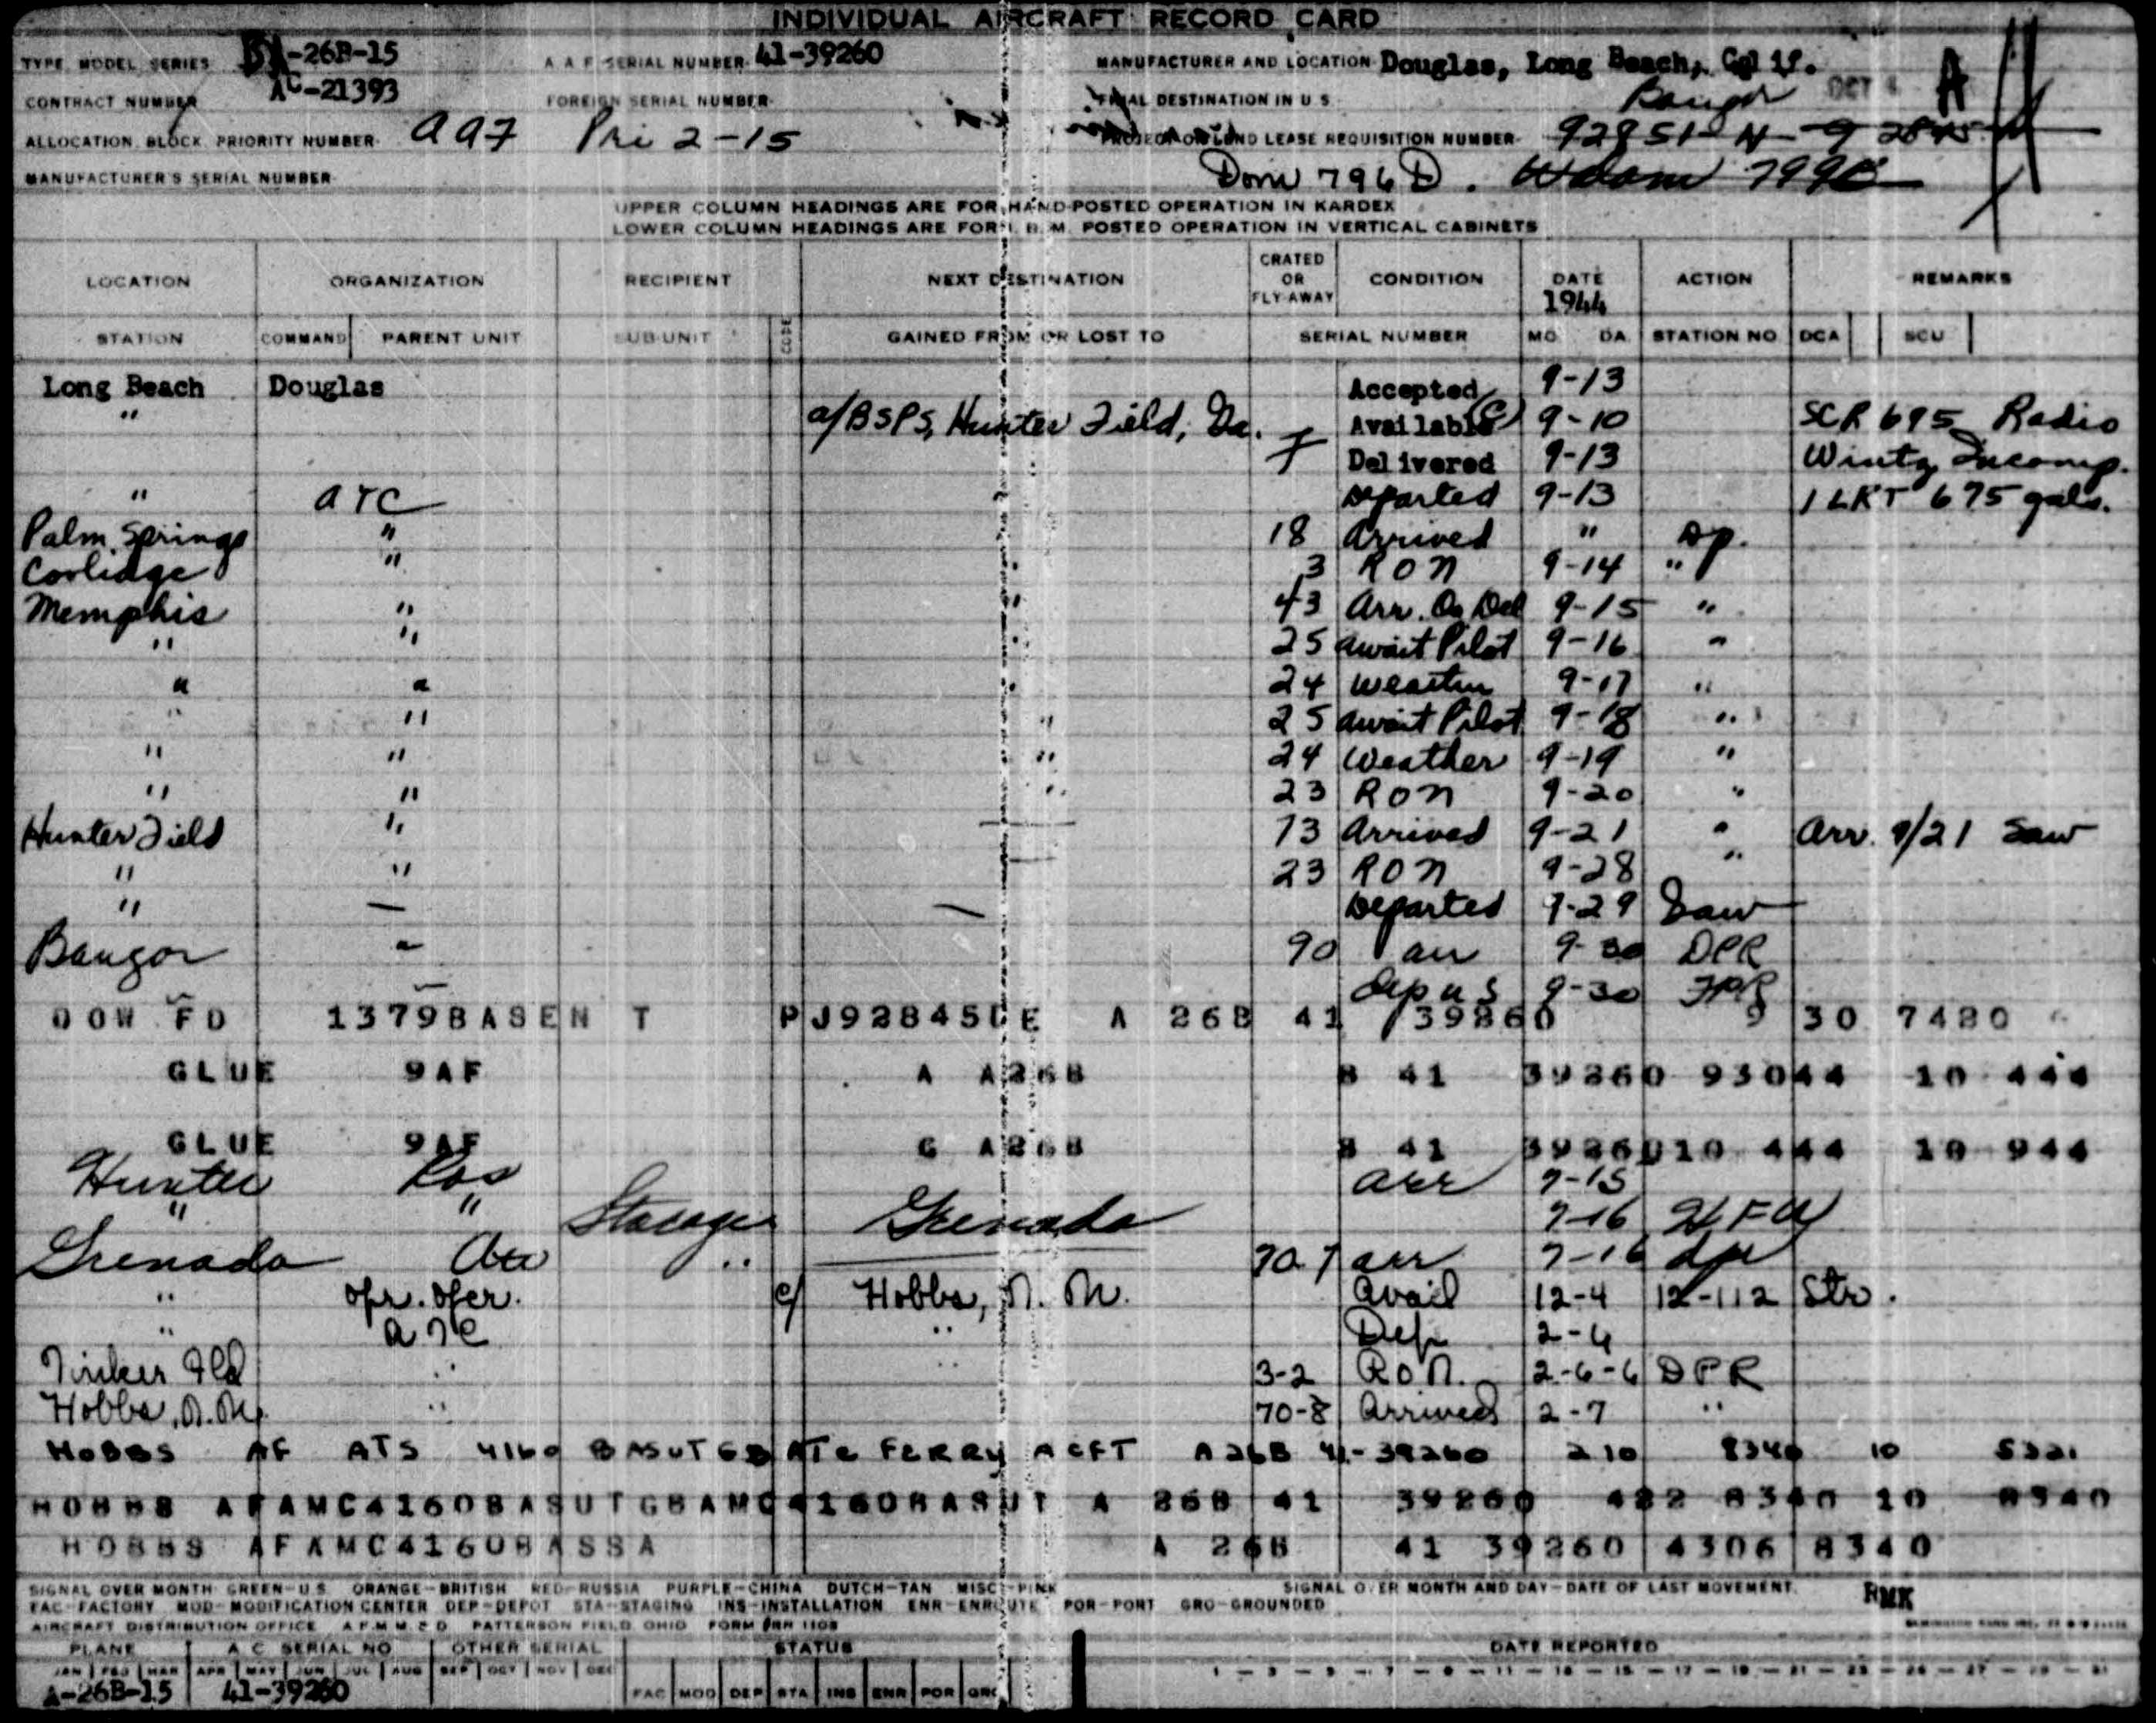 INDIVIDUAL AIRCRAFT RECORD CARD
TYPE, MODEL, SERIES -26B-15 A A F SERIAL NUMBER 41-39260 MANUFACTURER AND LOCATION Douglas, Long Beach, Calif.
CONTRACT NUMBER AC-21393 FOREIGN SERIAL NUMBER FINAL DESTINATION IN U S Bangor OCT A
ALLOCATION, BLOCK, PRIORITY NUMBER a97 Pri 2-15 PROJECT OR LEND LEASE REQUISITION NUMBER
MANUFACTURER'S SERIAL NUMBER Dom 796D.
UPPER COLUMN HEADINGS ARE FOR HAND-POSTED OPERATION IN KARDEX
LOWER COLUMN HEADINGS ARE FOR I. B. M. POSTED OPERATION IN VERTICAL CABINETS
LOCATION ORGANIZATION RECIPIENT NEXT DESTINATION CRATED OR FLY-AWAY CONDITION DATE 1944 ACTION REMARKS
STATION COMMAND PARENT UNIT SUB-UNIT CODE GAINED FROM OR LOST TO SERIAL NUMBER MO DA STATION NO DCA SCU
Long Beach Douglas Accepted 9-13
" a/BSPS, Hunter Field, Ga. Available (C) 9-10 SCR 695 Radio
Delivered 9-13 Wintz Incomp.
" ATC " Departed 9-13 1 LRT 675 gals.
Palm Springs " 18 Arrived " Dp.
Coolidge " " 3 RON 9-14 "
Memphis " " 43 Arr. On Del 9-15 "
" " " 25 Await Pilot 9-16 "
" " " 24 Weather 9-17 "
" " " 25 Await Pilot 9-18 "
" " " 24 Weather 9-19 "
" " " 23 RON 9-20 "
Hunter Field " — 73 Arrived 9-21 " Arr. 9/21 Saw
" " — 23 RON 9-28 "
" — — Departed 9-29 Saw
Bangor — 90 arr 9-30 DPR
— dep us 9-30
DOW FD 1379BASEN T PJ92845DE A 26B 41 39260 9 30 7420
GLUE 9AF A A26B B 41 39260 93044 10 444
GLUE 9AF G A26B B 41 39260 10 444 10 944
Hunter arr 7-15
" " Storage Grenada 7-16
Grenada " 70-7 arr 7-16 dpr
" Opr. Oper. c/ Hobbs, N. M. Avail 12-4 12-112 Str.
" ATC " Dep 2-6
Tinker Fld " " 3-2 RON. 2-6-6 DPR
Hobbs, N.M. " 70-8 Arrived 2-7 "
HOBBS AF ATS 4160 BASUTGB ATC FERRY ACFT A26B 41-39260 210 8340 10
HOBBS AFAMC4160BASUTGBAMC4160BASUT A 26B 41 39260 422 8340 10 8340
HOBBS AFAMC4160BASSA A 26B 41 39260 4306 8340
SIGNAL OVER MONTH GREEN-U.S. ORANGE-BRITISH RED-RUSSIA PURPLE-CHINA DUTCH-TAN MISC-PINK SIGNAL OVER MONTH AND DAY-DATE OF LAST MOVEMENT. RMK
FAC-FACTORY MOD-MODIFICATION CENTER DEP-DEPOT STA-STAGING INS-INSTALLATION ENR-ENROUTE POR-PORT GRO-GROUNDED
AIRCRAFT DISTRIBUTION OFFICE PATTERSON FIELD OHIO FORM 1108
PLANE A C SERIAL NO OTHER SERIAL STATUS DATE REPORTED
JAN FEB MAR APR MAY JUN JUL AUG SEP OCT NOV DEC 1 - 3 - 5 - 7 - 9 - 11 - 13 - 15 - 17 - 19 - 21 - 23 - 25 - 27 - 29 - 31
A-26B-15 41-39260 FAC MOD DEP STA INS ENR POR GRO